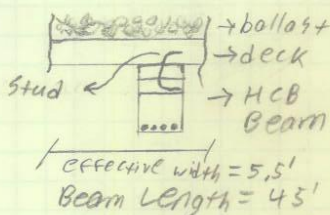 →ballast
→deck
Stud
→HCB
Beam
effective width = 5.5'
Beam Length = 45'